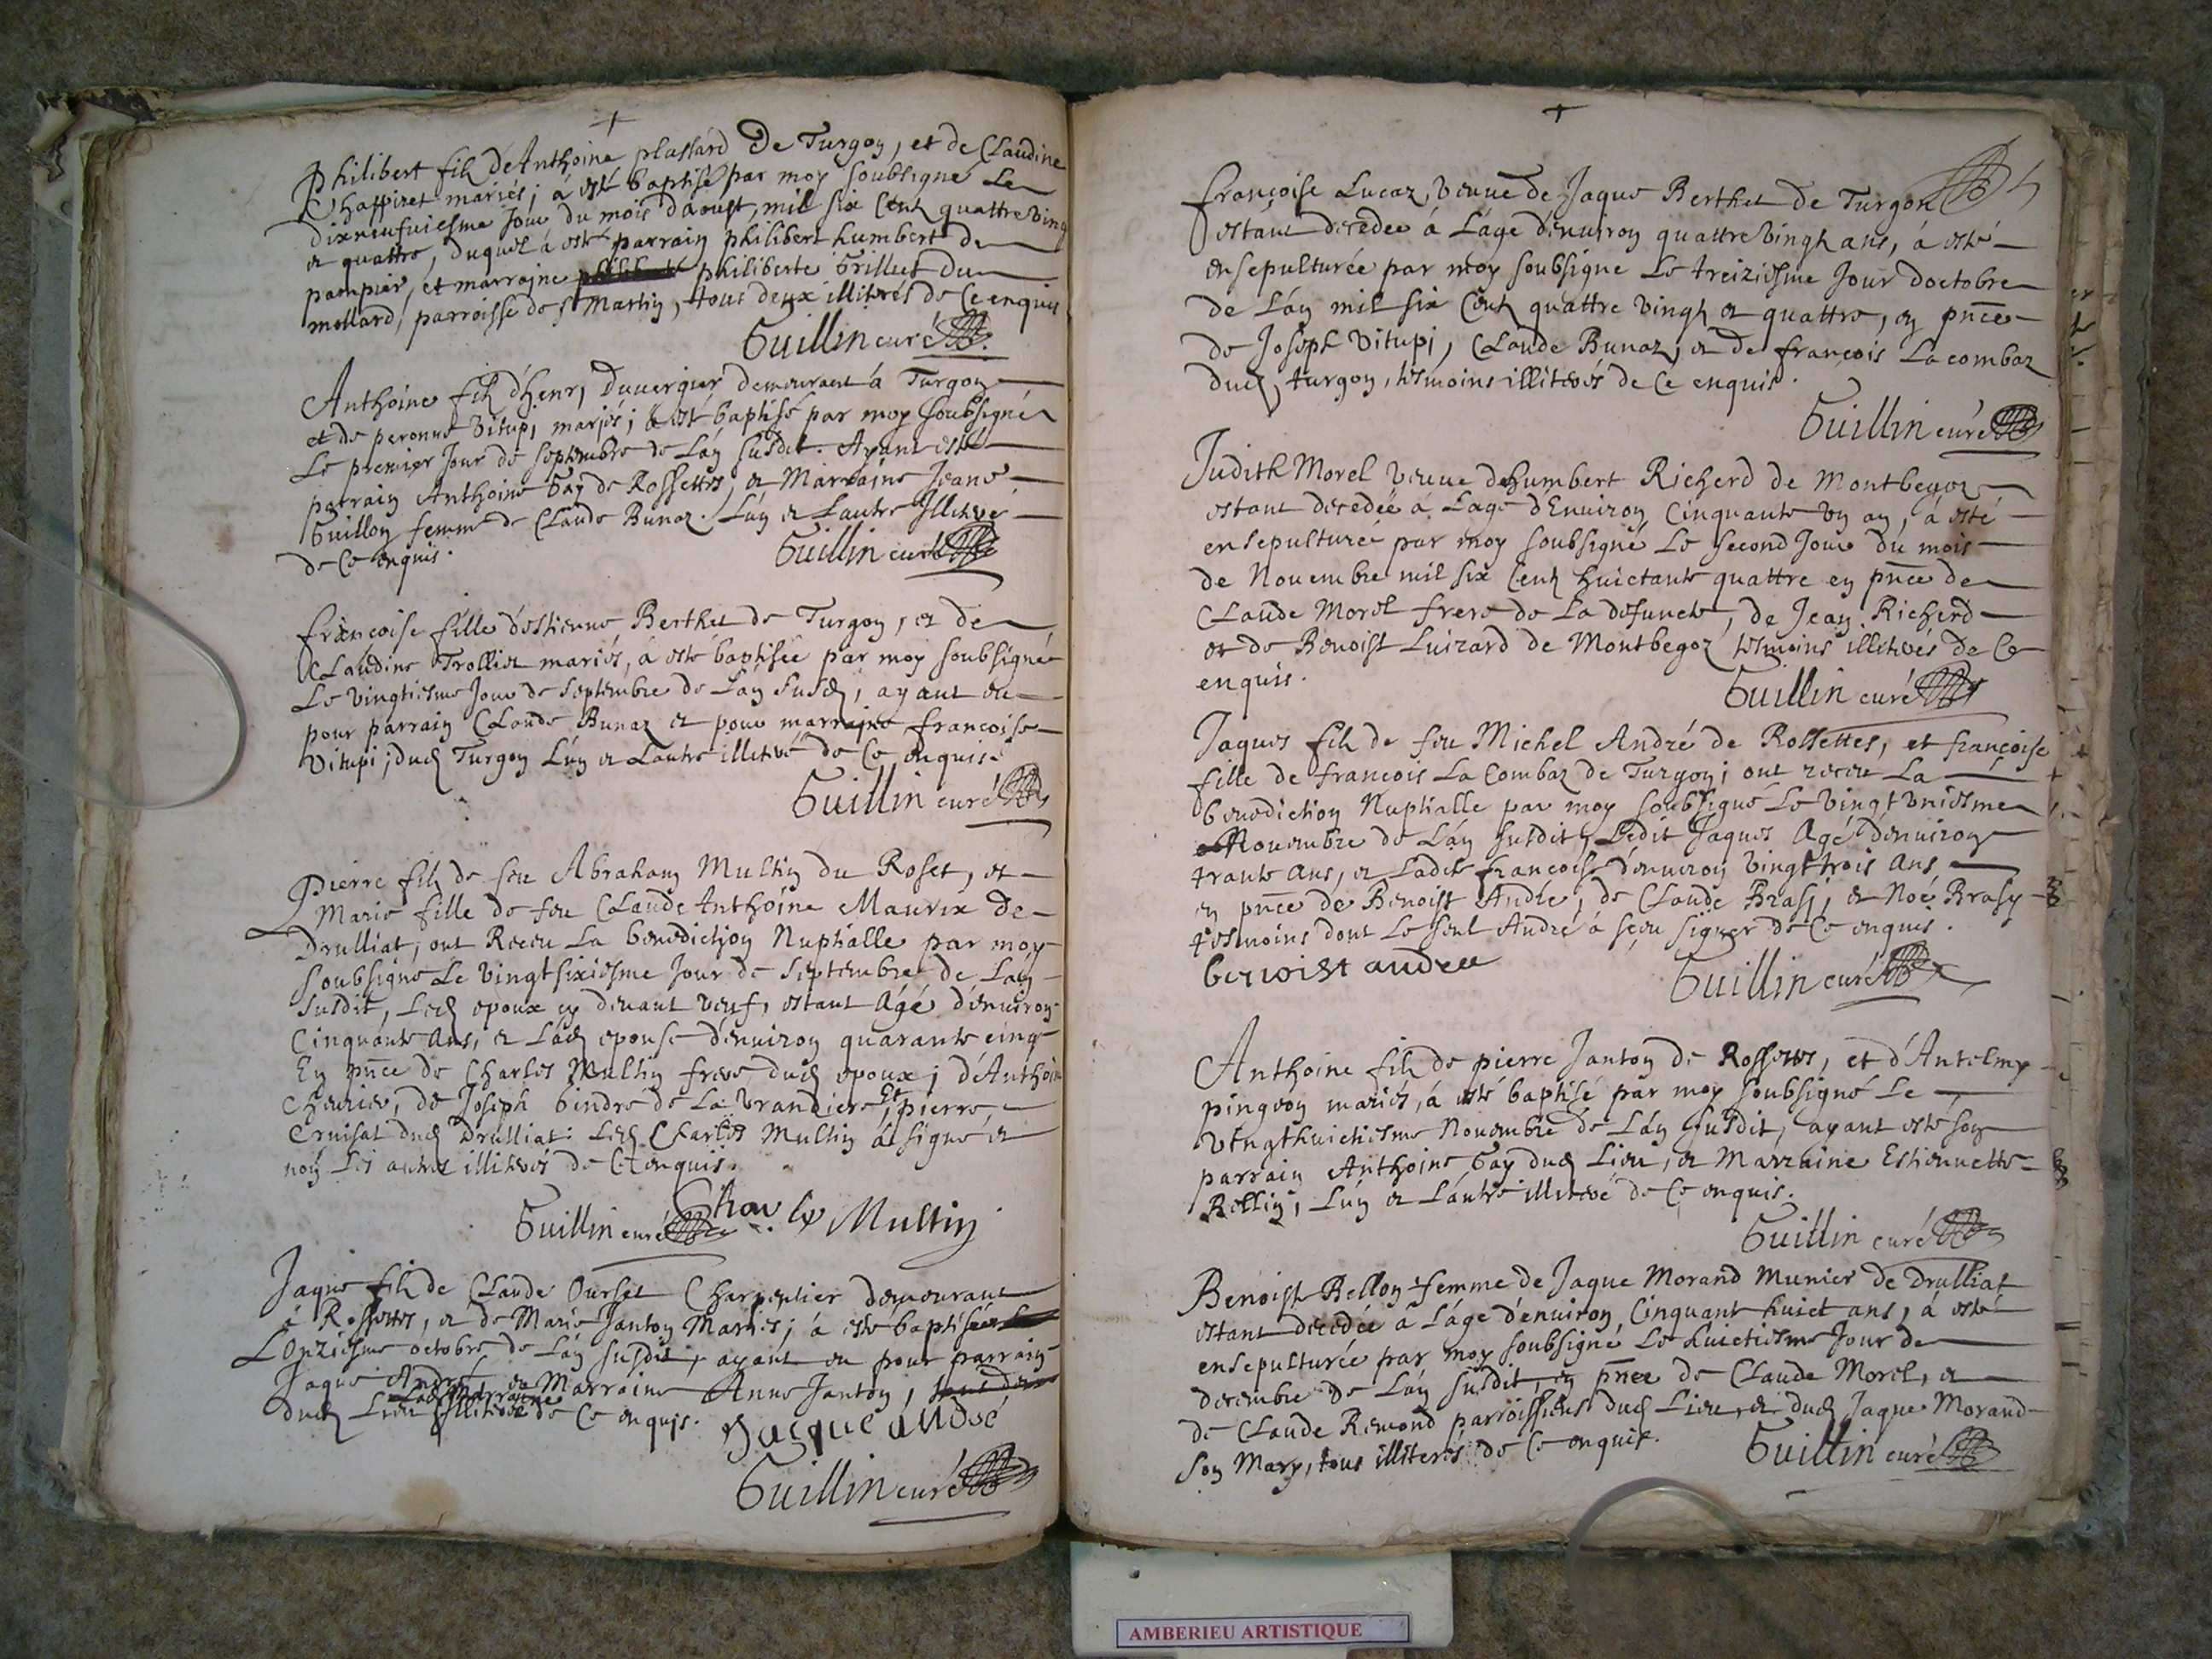 Philibert filz de Anthoine plattard De Turgon, et de Claudine
Chappizet mariés; à esté baptisé par moy soubsigné Le
dixneufuiesme Jour du mois daoust, mil six Cent quattre Ving
et quattre, duquel à esté parrain philibert humbert de
pampier, et marraine philiberte Grillet du
mollard, parroisse de St Martin, tous deux illiterés de Ce enquis
Guillin curé
Anthoine filz d'Henry Duuergier demourant à Turgon
et de peronne Vitupi mariés; à esté baptisé par moy soubsigné
Le premier Jour de Septembre de Lan susdit. Ayant esté
parrain Anthoine Gay de Rossettes, et Marraine Jeane
Guillon femme de Claude Bunaz. Lun et Lautre Illiteré
de Ce enquis.
Guillin curé
francoise fille d'Estienne Berthet de Turgon, et de
Claudine Trollier mariés, à esté baptisée par moy soubsigné
Le vingtiesme Jour de Septembre de Lan susd, ayant eu
pour parrain Claude Bunaz et pour marraine francoise
Vitupi; dud Turgon Lun et Lautre illiteré de Ce enquis
Guillin curé
Pierre filz de feu Abraham Multin du Roset, et
Marie fille de feu Claude Anthoine Maurix de
Drulliat, ont Receu La benediction Nuptialle par moy
soubsigné Le vingtsixiesme Jour de Septembre de Lan
susdit, Led epoux cy deuant veuf, estant Agé d'enuiron
Cinquante Ans, et Lad epouse d'enuiron quarante cinq
En pnce de Charles Multin frere dud epoux; d'Anthoine
Cheurier, de Joseph Gindre de La Vrandiere, Et pierre
Cruisat dud Drulliat: Led Charles Multin à signé et
non Les autres illiterés de Ce enquis.
Guillin curé Charle Multin
Jaque filz de Claude Ourset Charpentier demourant
à Rossettes, et de Marie Janton Mariés; à esté baptisé
L'Onziesme octobre de Lan susdit, ayant eu pour parrain
Jaque André, et Marraine Anne Janton,
Lad Marraine
dud Lieu Illiteré de Ce enquis. Jacque André
Guillin curé
françoise Lucaz, veuue de Jaque Berthet de Turgon
estant decedée à Láge d'enuiron quattre vingh ans, à esté
ensepulturée par moy soubsigné Le treiziesme Jour doctobre
de Lan mil six Cent quattre vingh et quattre, en pnce
de Joseph Vitupi, Claude Bunaz, et de francois La combaz
dud turgon, tesmoins illiterés de Ce enquis.
Guillin curé
Judith Morel veuue de humbert Richerd de Montbegoz
estant decedée à Láge d'Enuiron Cinquante un an, à esté
ensepulturée par moy soubsigné Le second Jour du mois
de Nouembre mil six Cent huictante quattre en pnce de
Claude Morel frere de La defuncte, de Jean Richerd
et de Benoist Luizard de Montbegoz tesmoins illiterés de Ce
enquis.
Guillin curé
Jaques filz de feu Michel André de Rossettes, et françoise
fille de francois La Combaz de Turgon; ont receu La
benediction Nuptialle par moy soubsigné Le vingt uniesme
Nouembre de Lan susdit, Ledit Jaques Agé d'enuiron
trante ans, et Ladite francoise d'enuiron vingt trois ans
en pnce de Benoist André, de Claude Brasi, et Noé Brasy
tesmoins dont Le seul André à sceu signer de Ce enquis.
benoist andre
Guillin curé
Anthoine filz de pierre Janton de Rossettes, et d'Antelmy
pingeon mariés, à esté baptisé par moy soubsigné Le
vingthuictiesme Nouembre de Lan susdit, ayant esté son
parrain Anthoine Gay dud Lieu, et Marraine Estiennette
Rellin, Lun et Lautre illiteré de Ce enquis.
Guillin curé
Benoist Bellon femme de Jaque Morand Munier de Drulliat
estant decedée à Láge d'enuiron, Cinquant huict ans, à esté
ensepulturée par moy soubsigné Le huictiesme Jour de
decembre de Lan susdit, en pnce de Claude Morel, et
de Claude Remond parroissiens dud Lieu, et dud Jaque Morand
son Mary, tous illiterés de Ce enquis.
Guillin curé
AMBERIEU ARTISTIQUE